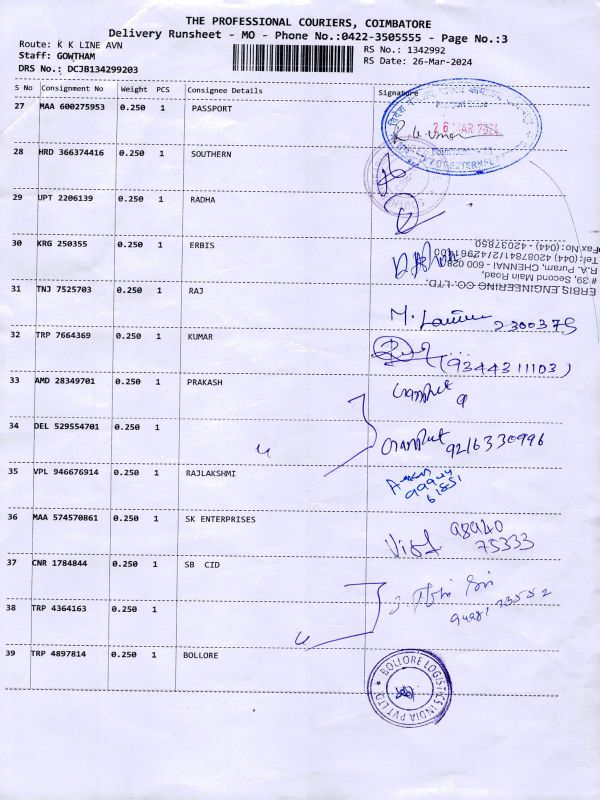 THE PROFESSIONAL COURIERS, COIMBATORE
Delivery Runsheet - MO - Phone No.:0422-3505555 - Page No.:3
Route: K K LINE AVN
RS No.: 1342992
Staff: GOWTHAM
RS Date: 26-Mar-2024
DRS No.: DCJB134299203
S No Consignment No Weight PCS Consignee Details Signature
27 MAA 600275953 0.250 1 PASSPORT
26 MAR 2024
28 HRD 366374416 0.250 1 SOUTHERN
29 UPT 2206139 0.250 1 RADHA
30 KRG 250355 0.250 1 ERBIS
ERBIS ENGINEERING CO. LTD.
# 39, Second Main Road,
R.A. Puram, CHENNAI - 600 028
Fax No: (044) - 42037850
31 TNJ 7525703 0.250 1 RAJ
2300375
32 TRP 7664369 0.250 1 KUMAR
(9344311103)
33 AMD 28349701 0.250 1 PRAKASH
34 DEL 529554701 0.250 1
9216330996
35 VPL 946676914 0.250 1 RAJLAKSHMI
36 MAA 574570861 0.250 1 SK ENTERPRISES
98940
75333
37 CNR 1784844 0.250 1 SB CID
38 TRP 4364163 0.250 1
39 TRP 4897814 0.250 1 BOLLORE
BOLLORE LOGISTICS INDIA PVT LTD